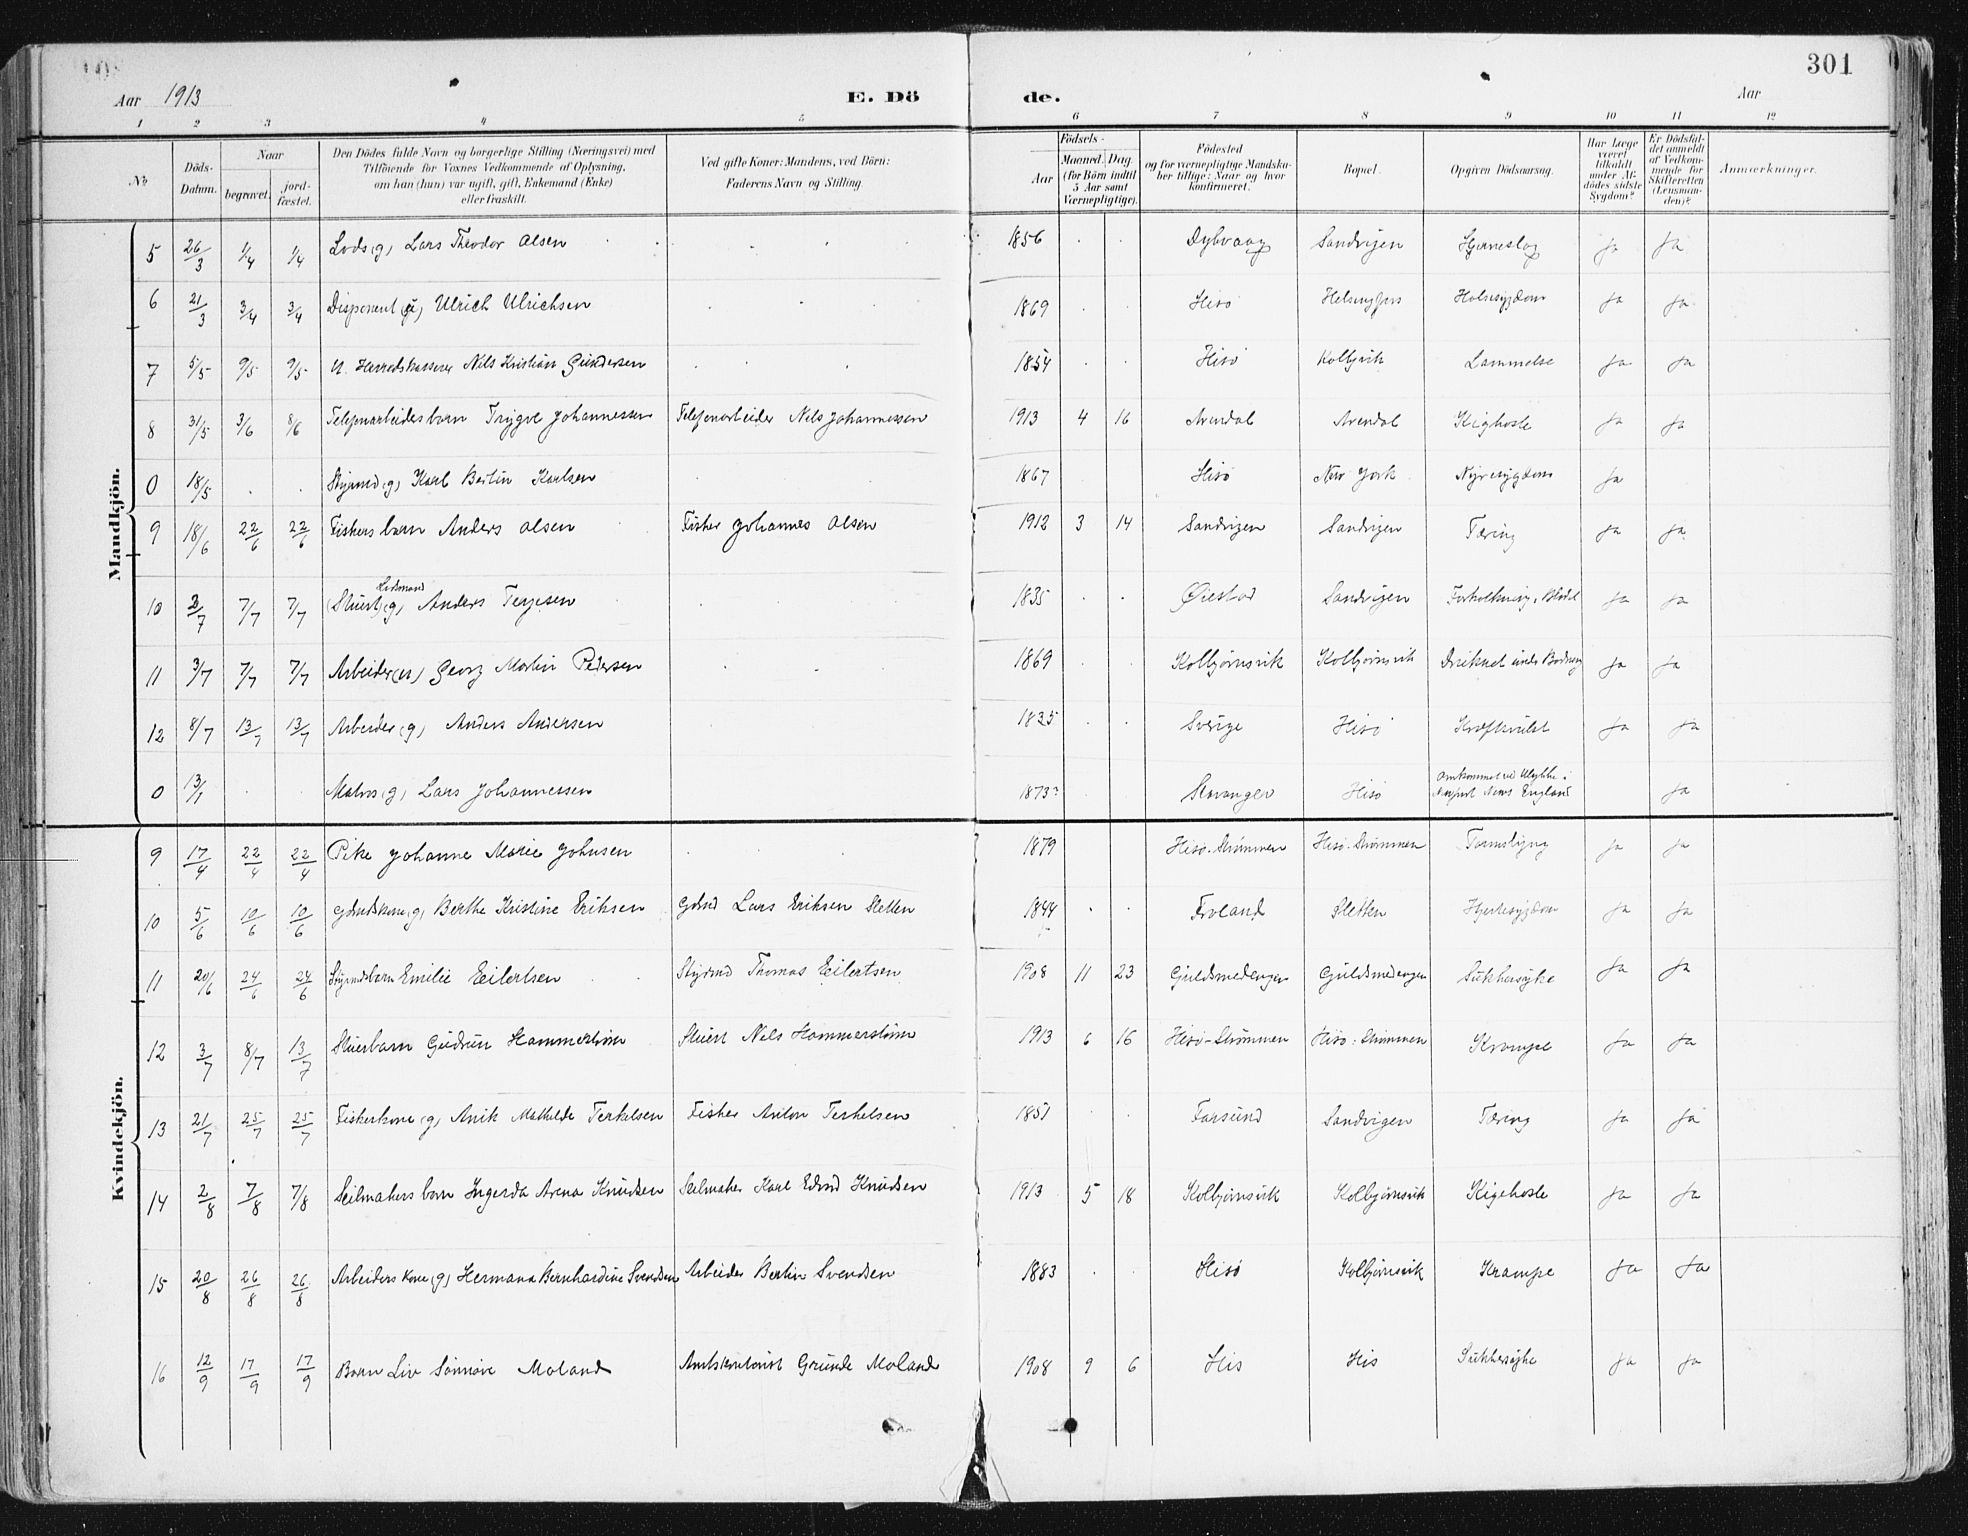 301
Aar 1913 E. Dö de. Aar
1 2 3 4 5 6 7 8 9 10 11 12
No. Döds-Datum. Naar begravet. jord-fæstet. Den Dödes fulde Navn og borgerlige Stilling (Næringsvei) med Tilföiende for Voxnes Vedkommende af Oplysning, om han (hun) var ugift, gift, Enkemand (Enke) eller fraskilt. Ved gifte Koner: Mandens, ved Börn: Faderens Navn og Stilling. Födsels- Aar Maaned. Dag. (for Börn indtil 5 Aar samt Værnepligtige). Födested og for værnepligtige Mandskaber tillige: Naar og hvor konfirmeret. Bopæl. Opgiven Dödsaarsag. Har Læge været tilkaldt under Afdödes sidste Sygdom? Er Dödsfaldet anmeldt af Vedkommende for Skifteretten (Lensmanden)? Anmærkninger.
Mandkjön.
5 26/3 1/4 1/4 Lods (g) Lars Theodor Olsen 1856 Dybvaag Sandvigen Hjerneslag Ja Ja
6 21/3 3/4 3/4 Disponent Ulrich Ulrichsen 1869 Hisø Helsingfors Halssygdom Ja Ja
7 5/5 9/5 9/5 U. Herredskasserer Nils Kristian Gundersen 1854 Hisø Kolbjvik Lammelse Ja Ja
8 31/5 3/6 8/6 Telefonarbeidersbarn Trygve Johannessen Telefonarbeider Nils Johannessen 1913 4 16 Arendal Arendal Kighoste Ja Ja
0 18/5 Styrmd (g) Karl Bertin Karlsen 1867 Hisø New York Nyresygdom Ja
9 18/6 22/6 22/6 Fiskers barn Anders Olsen Fisker Johannes Olsen 1912 3 14 Sandvigen Sandvigen Tæring Ja Ja
10 2/7 7/7 7/7 (Stuert (g) Ledsmand Anders Terjesen 1835 Øiestad Sandvigen Forkalkning, Ja Ja
11 3/7 7/7 7/7 Arbeider (u) Georg Martin Pedersen 1869 Kolbjørnsvik Kolbjørnsvik Druknet under Badning Ja Ja
12 8/7 13/7 13/7 Arbeider (g) Anders Andersen 1835 Sverige Hisø Kræftsvulst Ja Ja
0 13/1 Matros (g) Lars Johannessen 1873? Stavanger Hisø Omkommet ved Ulykke i Newport News England Ja
Kvindekjön.
9 17/4 22/4 22/4 Pike Johanne Marie Johnsen 1879 Hisø-Strømmen Hisø-Strømmen Tarmslyng Ja Ja
10 5/6 10/6 10/6 Gdmdskone (g) Berthe Kristine Eriksen Gdmd Lars Eriksen Sletten 1844 Froland Sletten Hjertesygdom Ja Ja
11 20/6 24/6 24/6 Styrmdsbarn Emilie Eilertsen Styrmd Thomas Eilertsen 1908 11 23 Guldsmedengen Guldsmedengen Sukkersyke Ja Ja
12 3/7 8/7 13/7 Stuerbarn Gudrun Hammerstrøm Stuert Nils Hammerstrøm 1913 6 16 Hisø-Strømmen Hisø-Strømmen Krampe Ja Ja
13 21/7 25/7 25/7 Fiskerkone (g) Anik Mathilde Terkelsen Fisker Anton Terkelsen 1851 Farsund Sandvigen Tæring Ja Ja
14 2/8 7/8 7/8 Seilmakers barn Ingerda Arena Knudsen Seilmaker Karl Edvard Knudsen 1913 5 18 Kolbjørnsvik Kolbjørnsvik Kigehoste Ja Ja
15 20/8 26/8 26/8 Arbeiders kone (g) Hermana Bernhardine Svendsen Arbeider Bertin Svendsen 1883 Hisø Kolbjørnsvik Krampe Ja Ja
16 12/9 17/9 17/9 Barn Liv Sønnøve Moland Amtskontorist Grunde Moland 1908 9 6 His His Sukkersyke Ja Ja